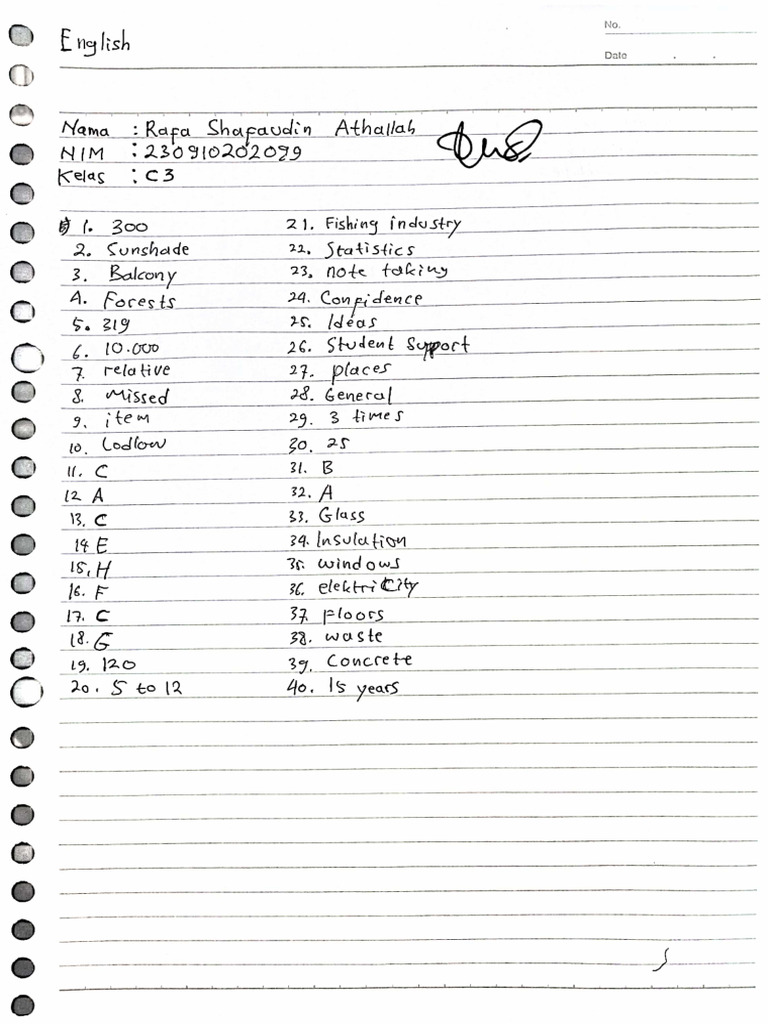 No.
Date
English
Nama : Rafa Shafaudin Athallah
NIM : 230910202099
Kelas : C3
1. 300
2. Sunshade
3. Balcony
4. Forests
5. 319
6. 10.000
7. relative
8. Missed
9. item
10. Lodlow
11. C
12 A
13. C
14 E
15, H
16. F
17. C
18. G
19. 120
20. 5 to 12
21. Fishing industry
22. Statistics
23. note taking
24. Confidence
25. Ideas
26. Student Support
27. places
28. General
29. 3 times
30. 25
31. B
32. A
33. Glass
34. Insulation
35. windows
36. elektricity
37. floors
38. waste
39. Concrete
40. 15 years